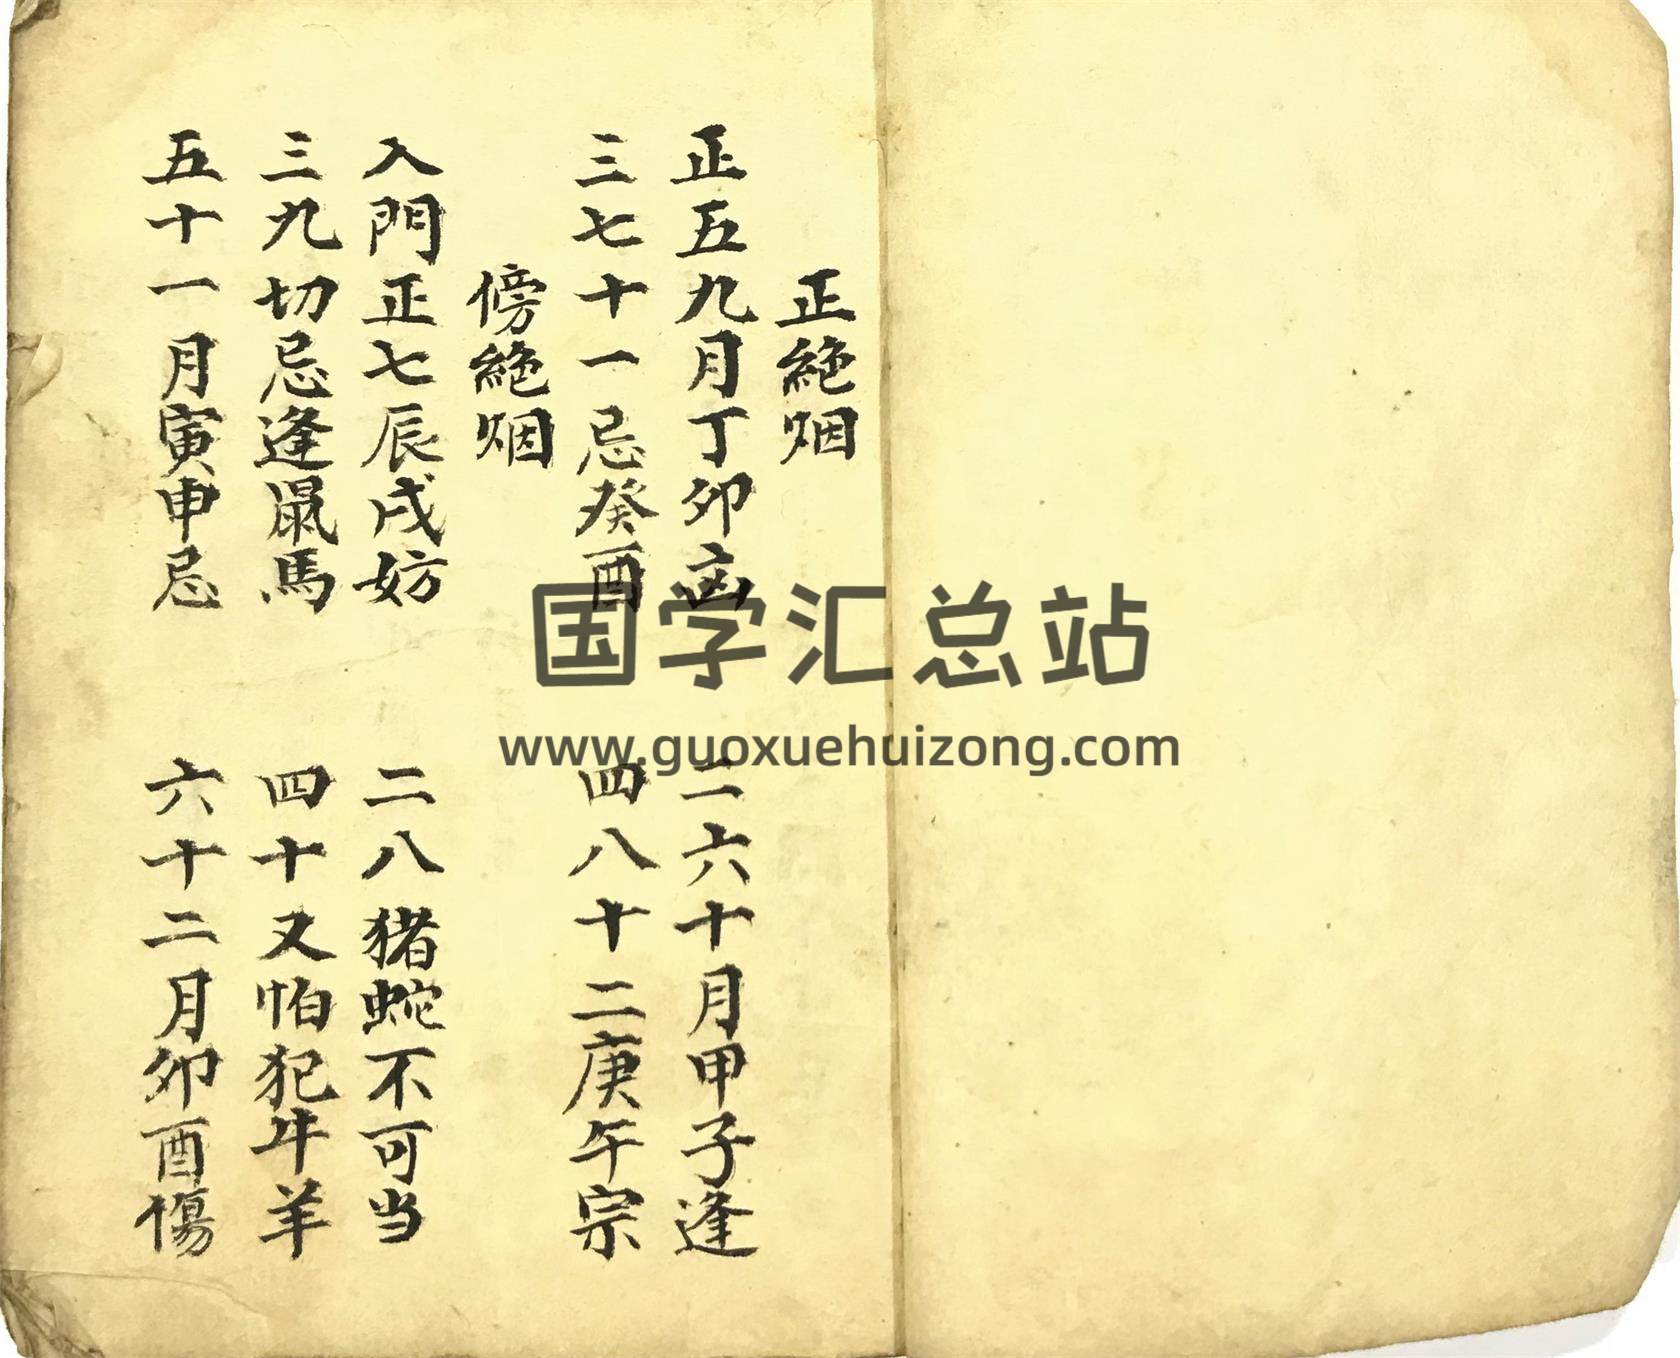 正絶烟
正五九月丁卯凶 二六十月甲子逢
三七十一忌癸酉 四八十二庚午宗
傍絶烟
入門正七辰戌妨 二八猪蛇不可当
三九切忌逢鼠馬 四十又怕犯牛羊
五十一月寅申忌 六十二月卯酉傷
国学汇总站
www.guoxuehuizong.com